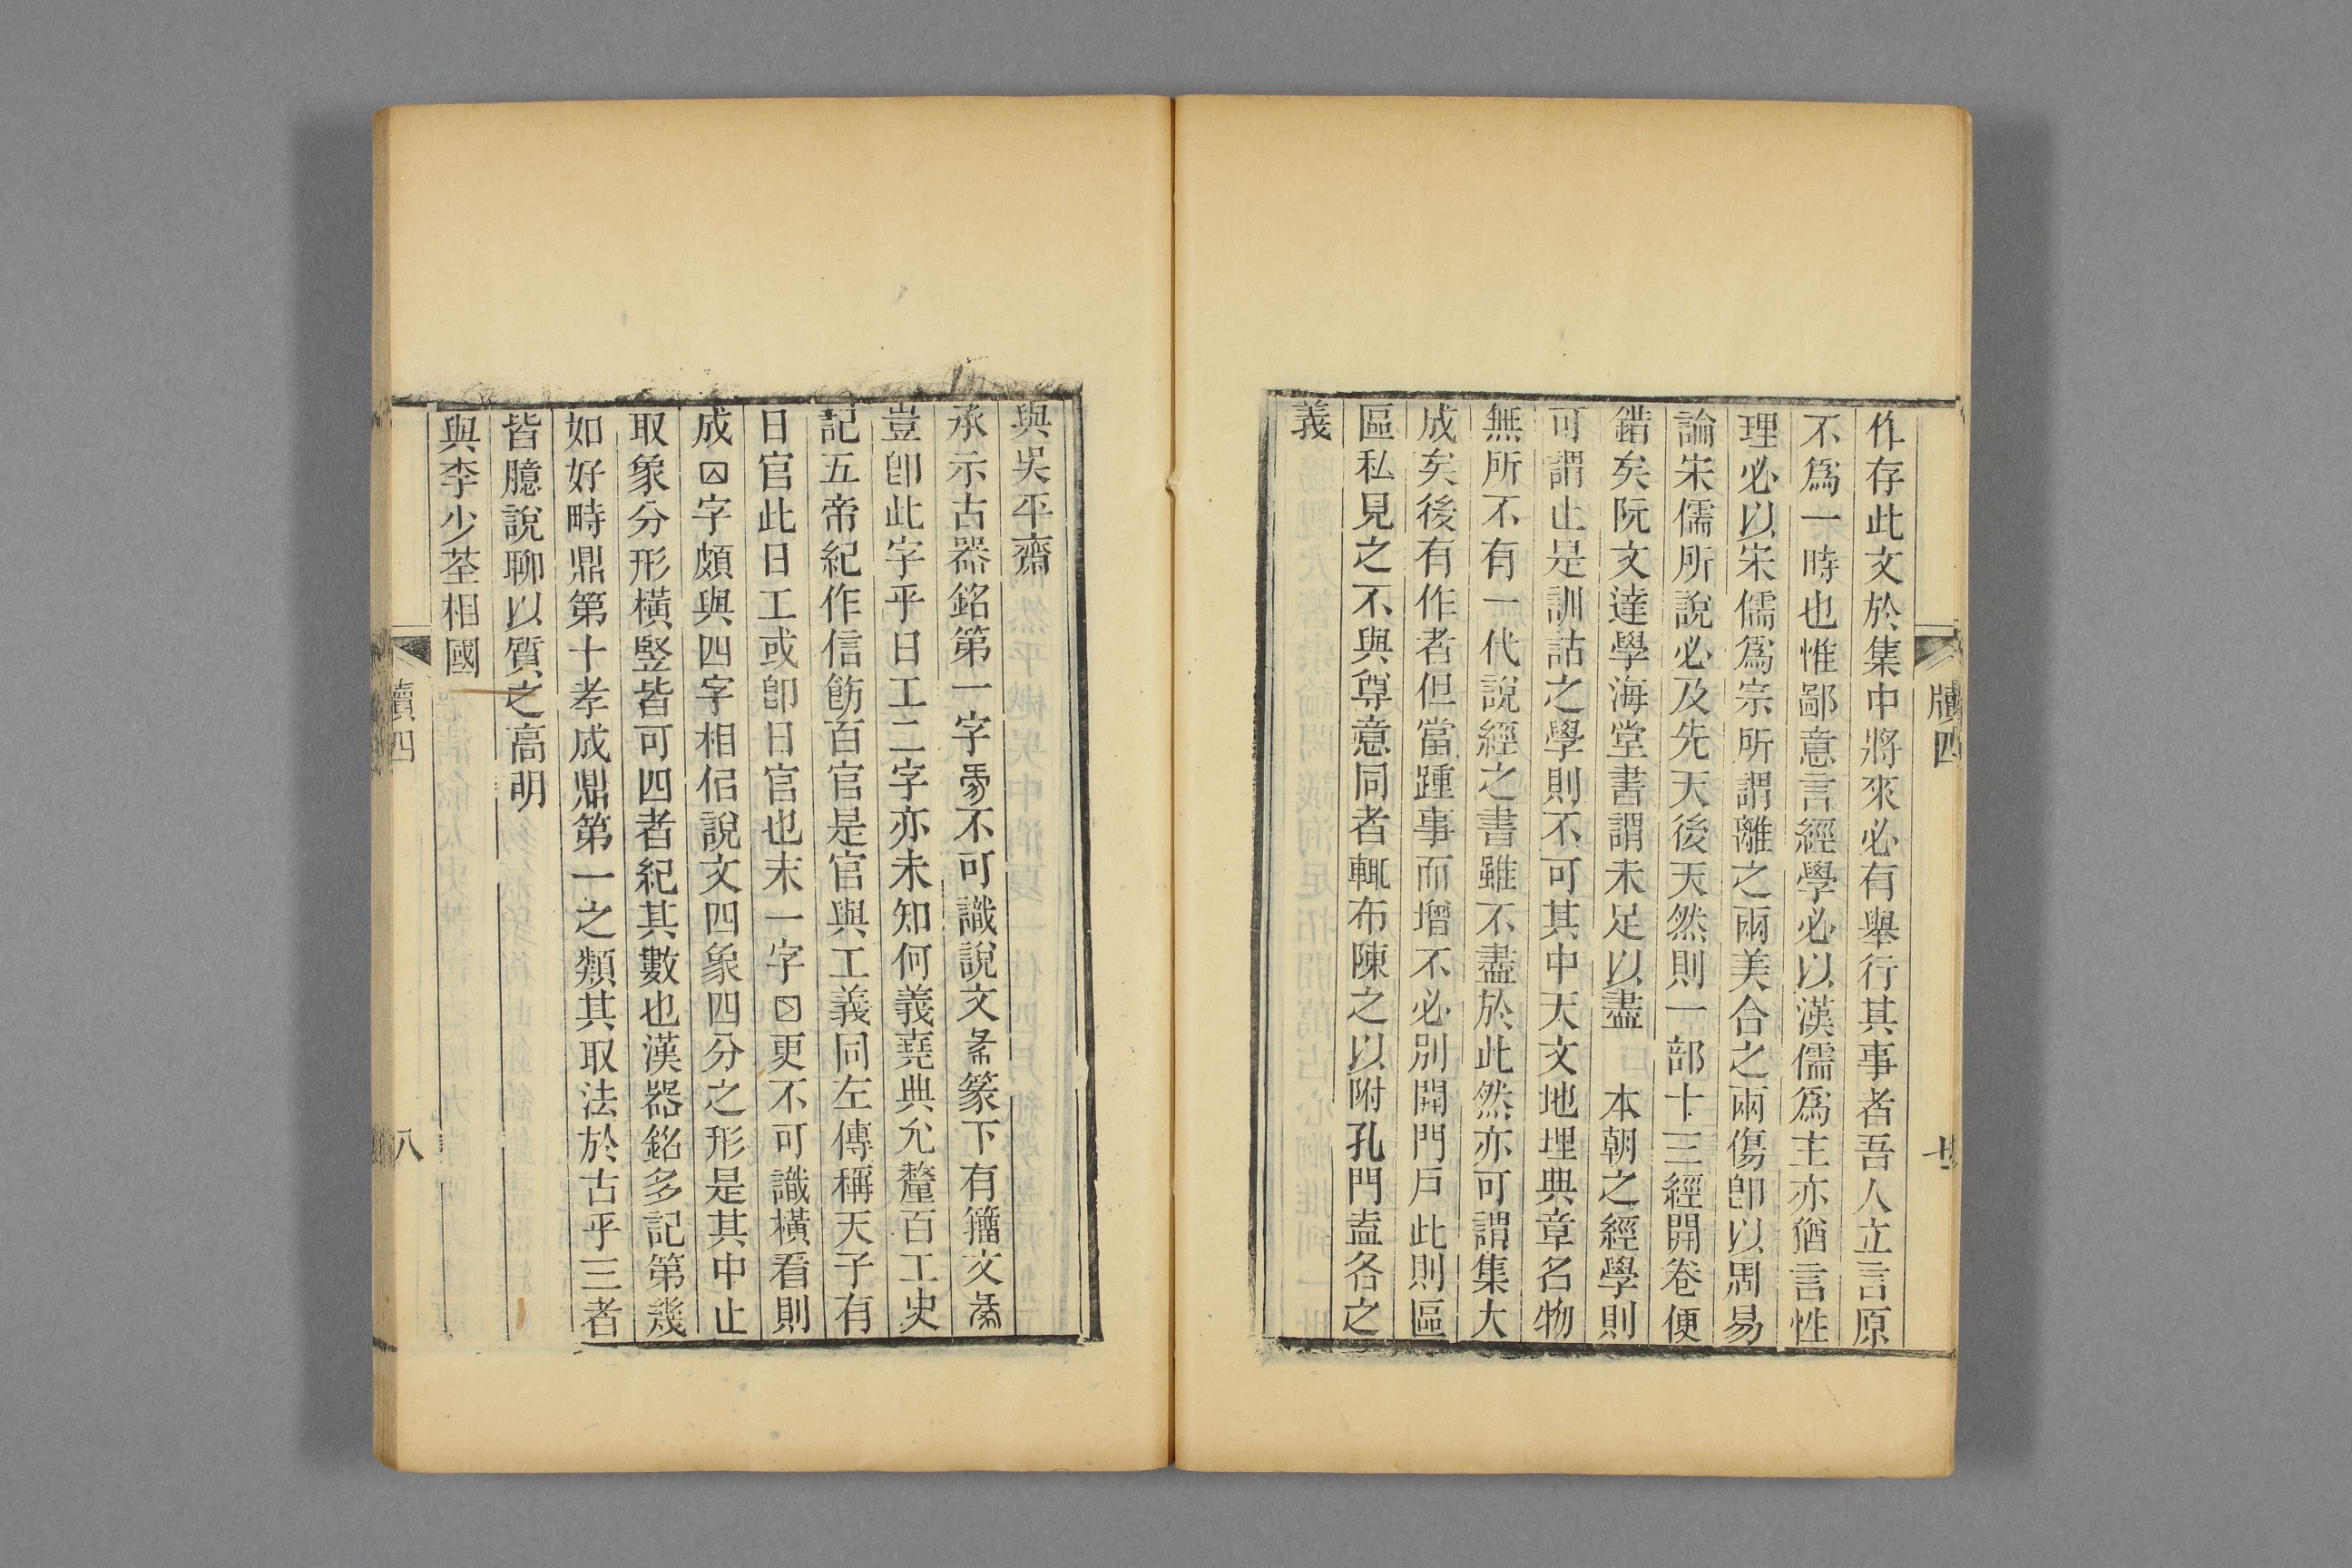 牘四
七
作存此文於集中將來必有舉行其事者吾人立言原
不爲一時也惟鄙意言經學必以漢儒爲主亦猶言性
理必以宋儒爲宗所謂離之兩美合之兩傷卽以周易
論宋儒所說必及先天後天然則一部十三經開卷便
錯矣阮文達學海堂書謂未足以盡　本朝之經學則
可謂止是訓詁之學則不可其中天文地理典章名物
無所不有一代說經之書雖不盡於此然亦可謂集大
成矣後有作者但當踵事而增不必別開門戶此則區
區私見之不與尊意同者輒布陳之以附孔門盍各之
義
與吳平齋
承示古器銘第一字不可識說文篆下有籀文
豈卽此字乎日工二字亦未知何義堯典允釐百工史
記五帝紀作信飭百官是官與工義同左傳稱天子有
日官此日工或卽日官也末一字更不可識橫看則
成字頗與四字相侣說文四象四分之形是其中止
取象分形橫竪皆可四者紀其數也漢器銘多記第幾
如好畤鼎第十孝成鼎第一之類其取法於古乎三者
皆臆說聊以質之高明
與李少荃相國
牘四
八